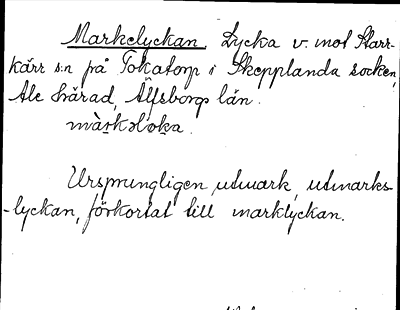 Markelyckan. Lycka v. mot Starr-
kärr s:n på Tokatorp i Skepplanda socken,
Ale härad, Älfsborgs län.

Ursprungligen utmark, utmarks-
-lyckan, förkortat till marklyckan.